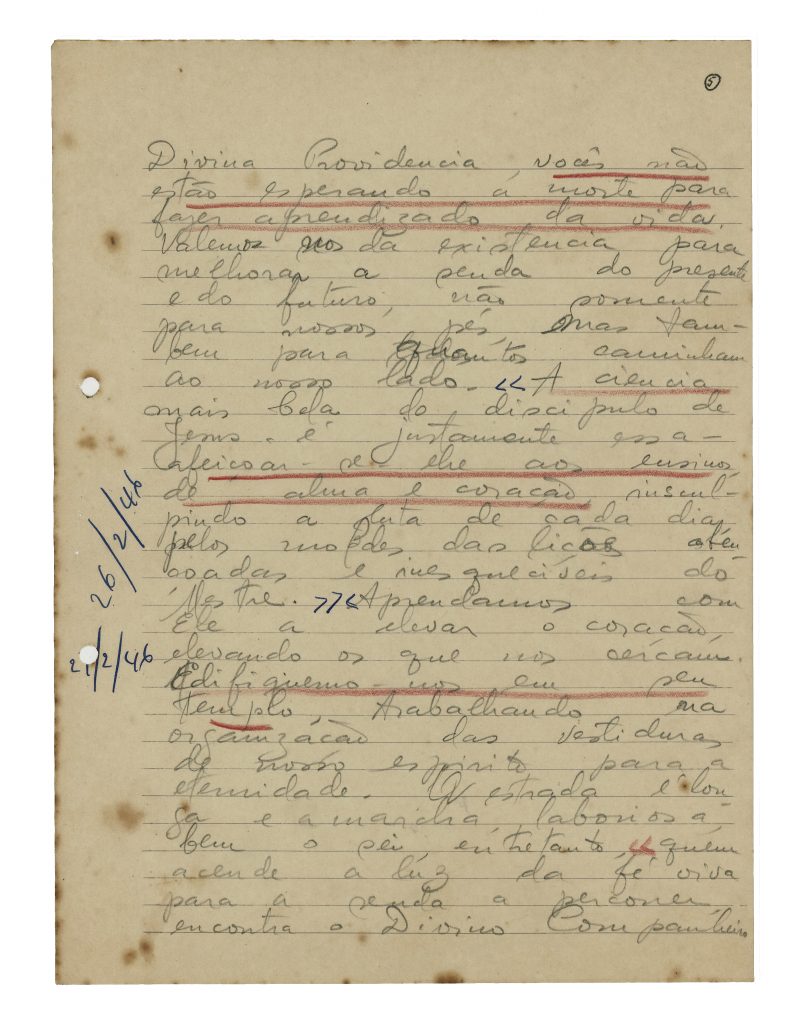 5
Divina Providencia, vocês não
estão esperando á morte para
fazer aprendizado da vida.
Valemos nos da existencia para
melhorar a senda do presente
e do futuro, não somente
para nossos pés, mas tam-
bem para quantos caminham
ao nosso lado. << A ciencia
mais bela do discipulo de
Jesus. é justamente essa -
afeiçoar-se-lhe aos ensinos
de alma e coração, inscul-
pindo a luta de cada dia
pelos moldes das lições aben
çoadas e inesqueciveis do
Mestre. >> << Aprendamos com
Ele a elevar o coração,
elevando os que nos cercam.
Edifiquemo-nos em seu
templo, trabalhando na
organização das vestiduras
de nosso espirito para a
eternidade. A estrada é lon
ga e a marcha, laboriosa -
bem o sei, entretanto, << quem
acende a luz da fé viva
para a senda a percorrer
encontra o Divino Companheiro
26/2/46
21/2/46